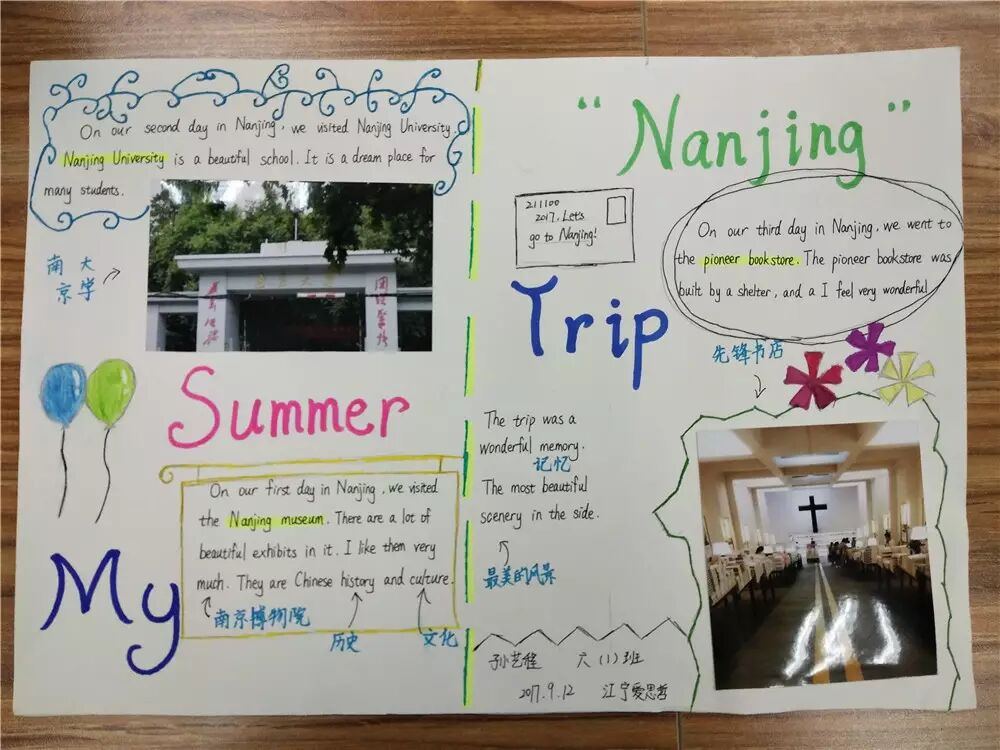 On our second day in Nanjing, we visited Nanjing University.
Nanjing University is a beautiful school. It is a dream place for
many students.
南大
京学
Summer
On our first day in Nanjing, we visited
the Nanjing museum. There are a lot of
beautiful exhibits in it. I like them very
much. They are Chinese history and culture.
南京博物院
历史
文化
My
"Nanjing"
211100
2017, Let's
go to Nanjing!
On our third day in Nanjing, we went to
the pioneer bookstore. The pioneer bookstore was
built by a shelter, and a I feel very wonderful
Trip
先锋书店
The trip was a
wonderful memory.
记忆
The most beautiful
scenery in the side.
最美的风景
孙艺程 六(1)班
2017.9.12 江宁爱思哲